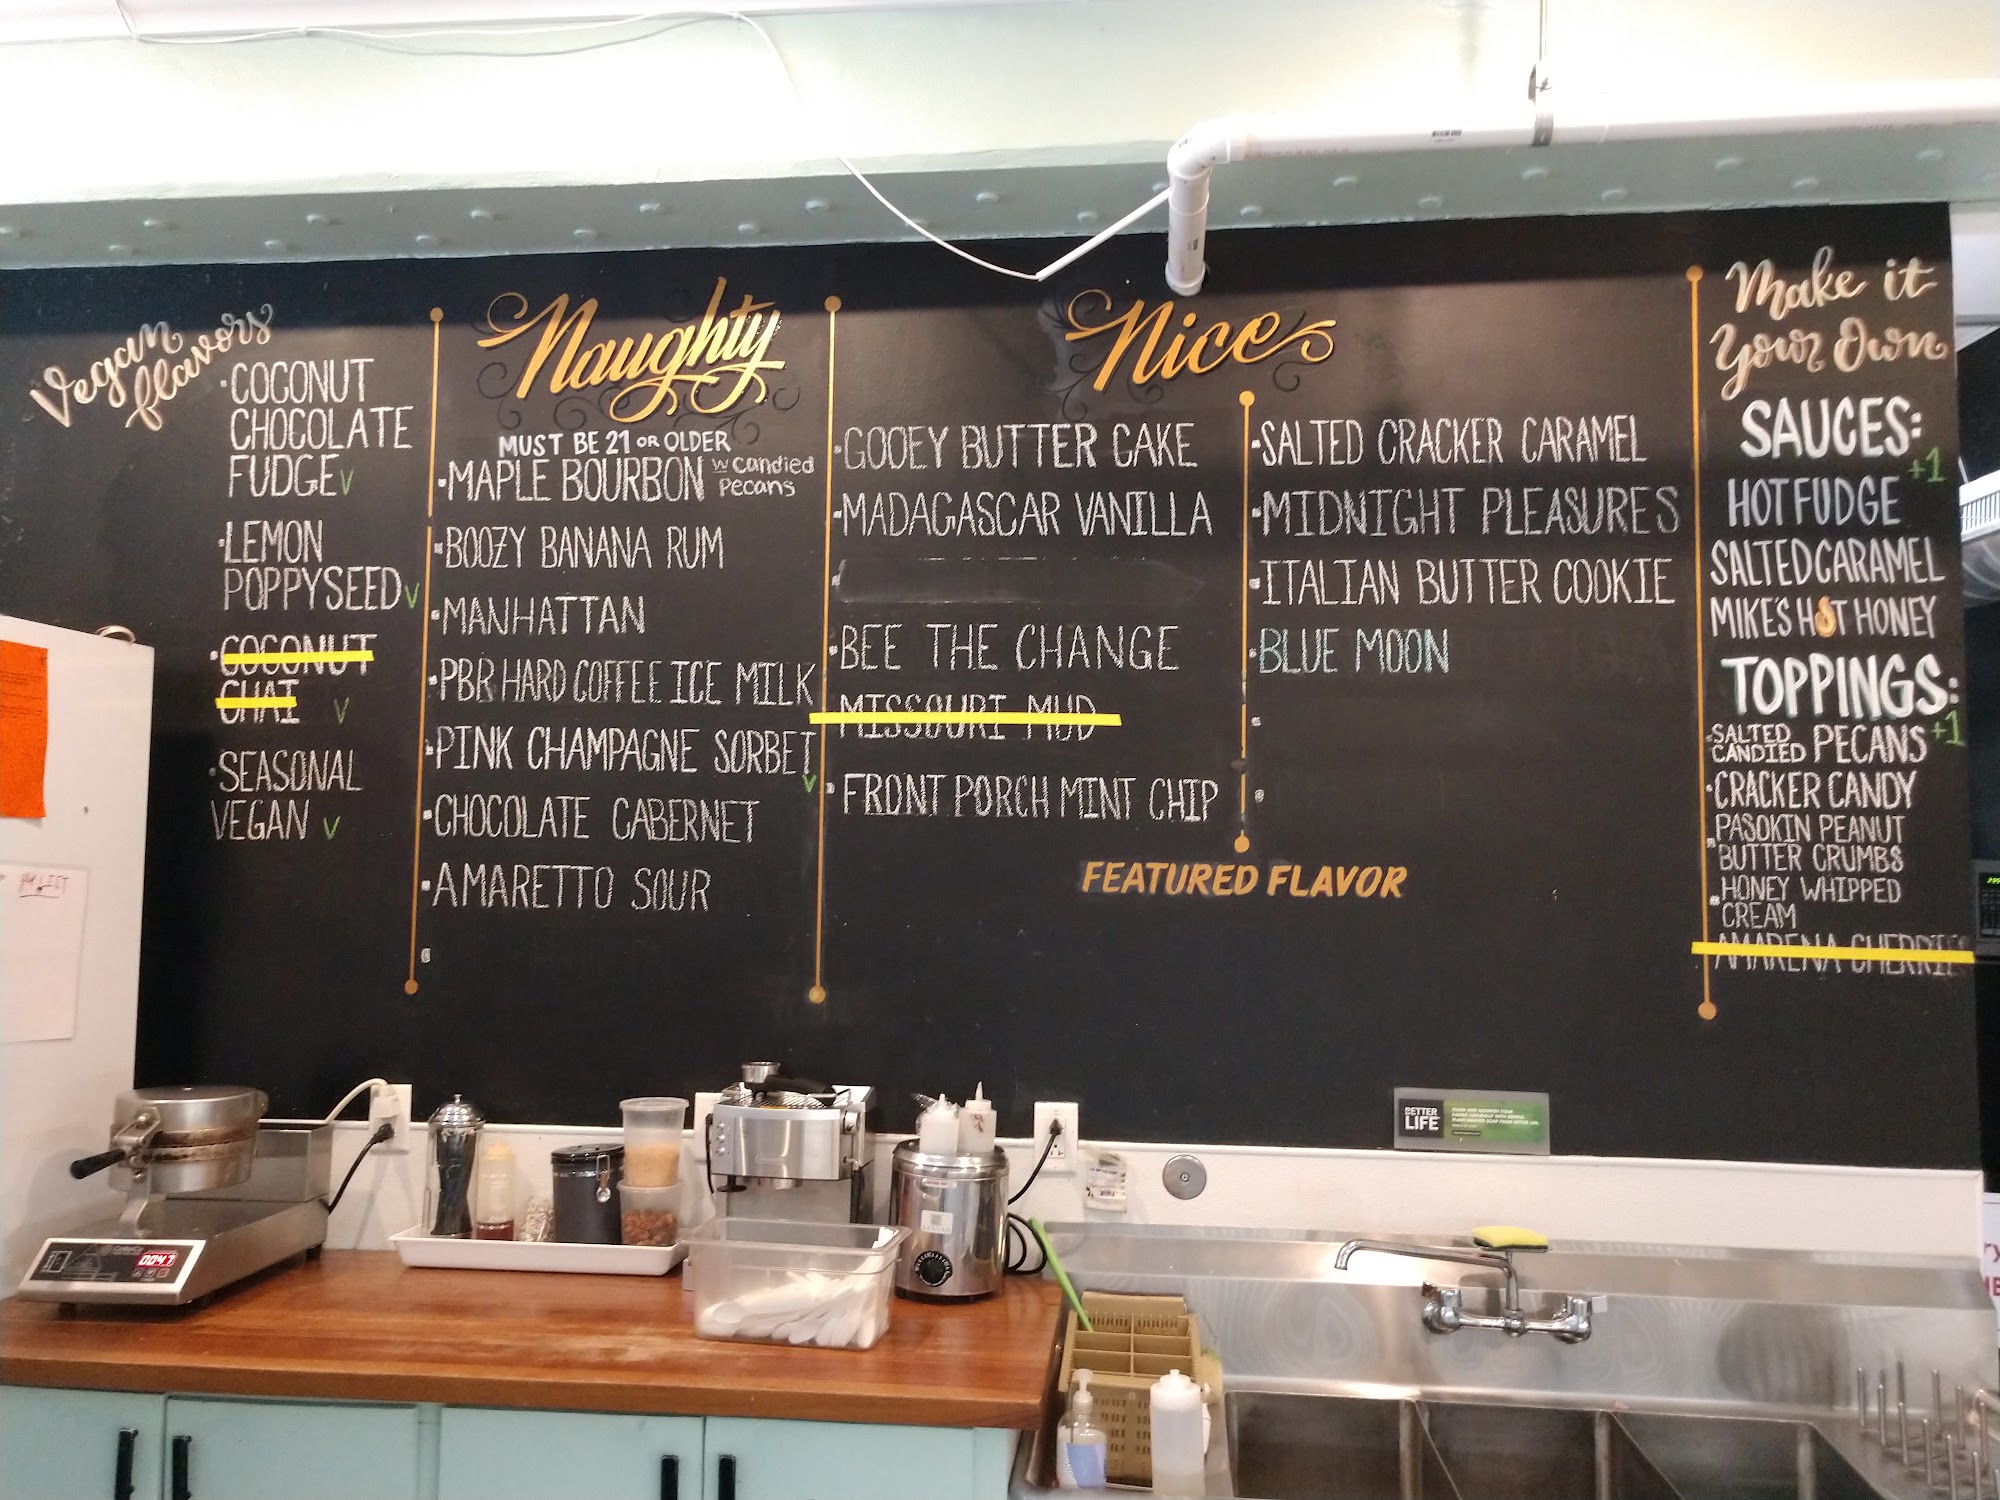 Vegan
flavors
COCONUT
CHOCOLATE
FUDGE V
LEMON
POPPYSEED V
COCONUT
CHAI V
SEASONAL
VEGAN V
Naughty
MUST BE 21 OR OLDER
MAPLE BOURBON w candied
pecans
BOOZY BANANA RUM
MANHATTAN
PBR HARD COFFEE ICE MILK
PINK CHAMPAGNE SORBET
V
CHOCOLATE CABERNET
AMARETTO SOUR
Nice
GOOEY BUTTER CAKE
MADAGASCAR VANILLA
BEE THE CHANGE
MISSOURI MUD
FRONT PORCH MINT CHIP
SALTED CRACKER CARAMEL
MIDNIGHT PLEASURES
ITALIAN BUTTER COOKIE
BLUE MOON
FEATURED FLAVOR
Make it
Your Own
SAUCES:
+1
HOT FUDGE
SALTED CARAMEL
MIKE'S HOT HONEY
TOPPINGS:
+1
SALTED
CANDIED PECANS
CRACKER CANDY
PASOKIN PEANUT
BUTTER CRUMBS
HONEY WHIPPED
CREAM
AMARENA CHERRIES
BETTER
LIFE